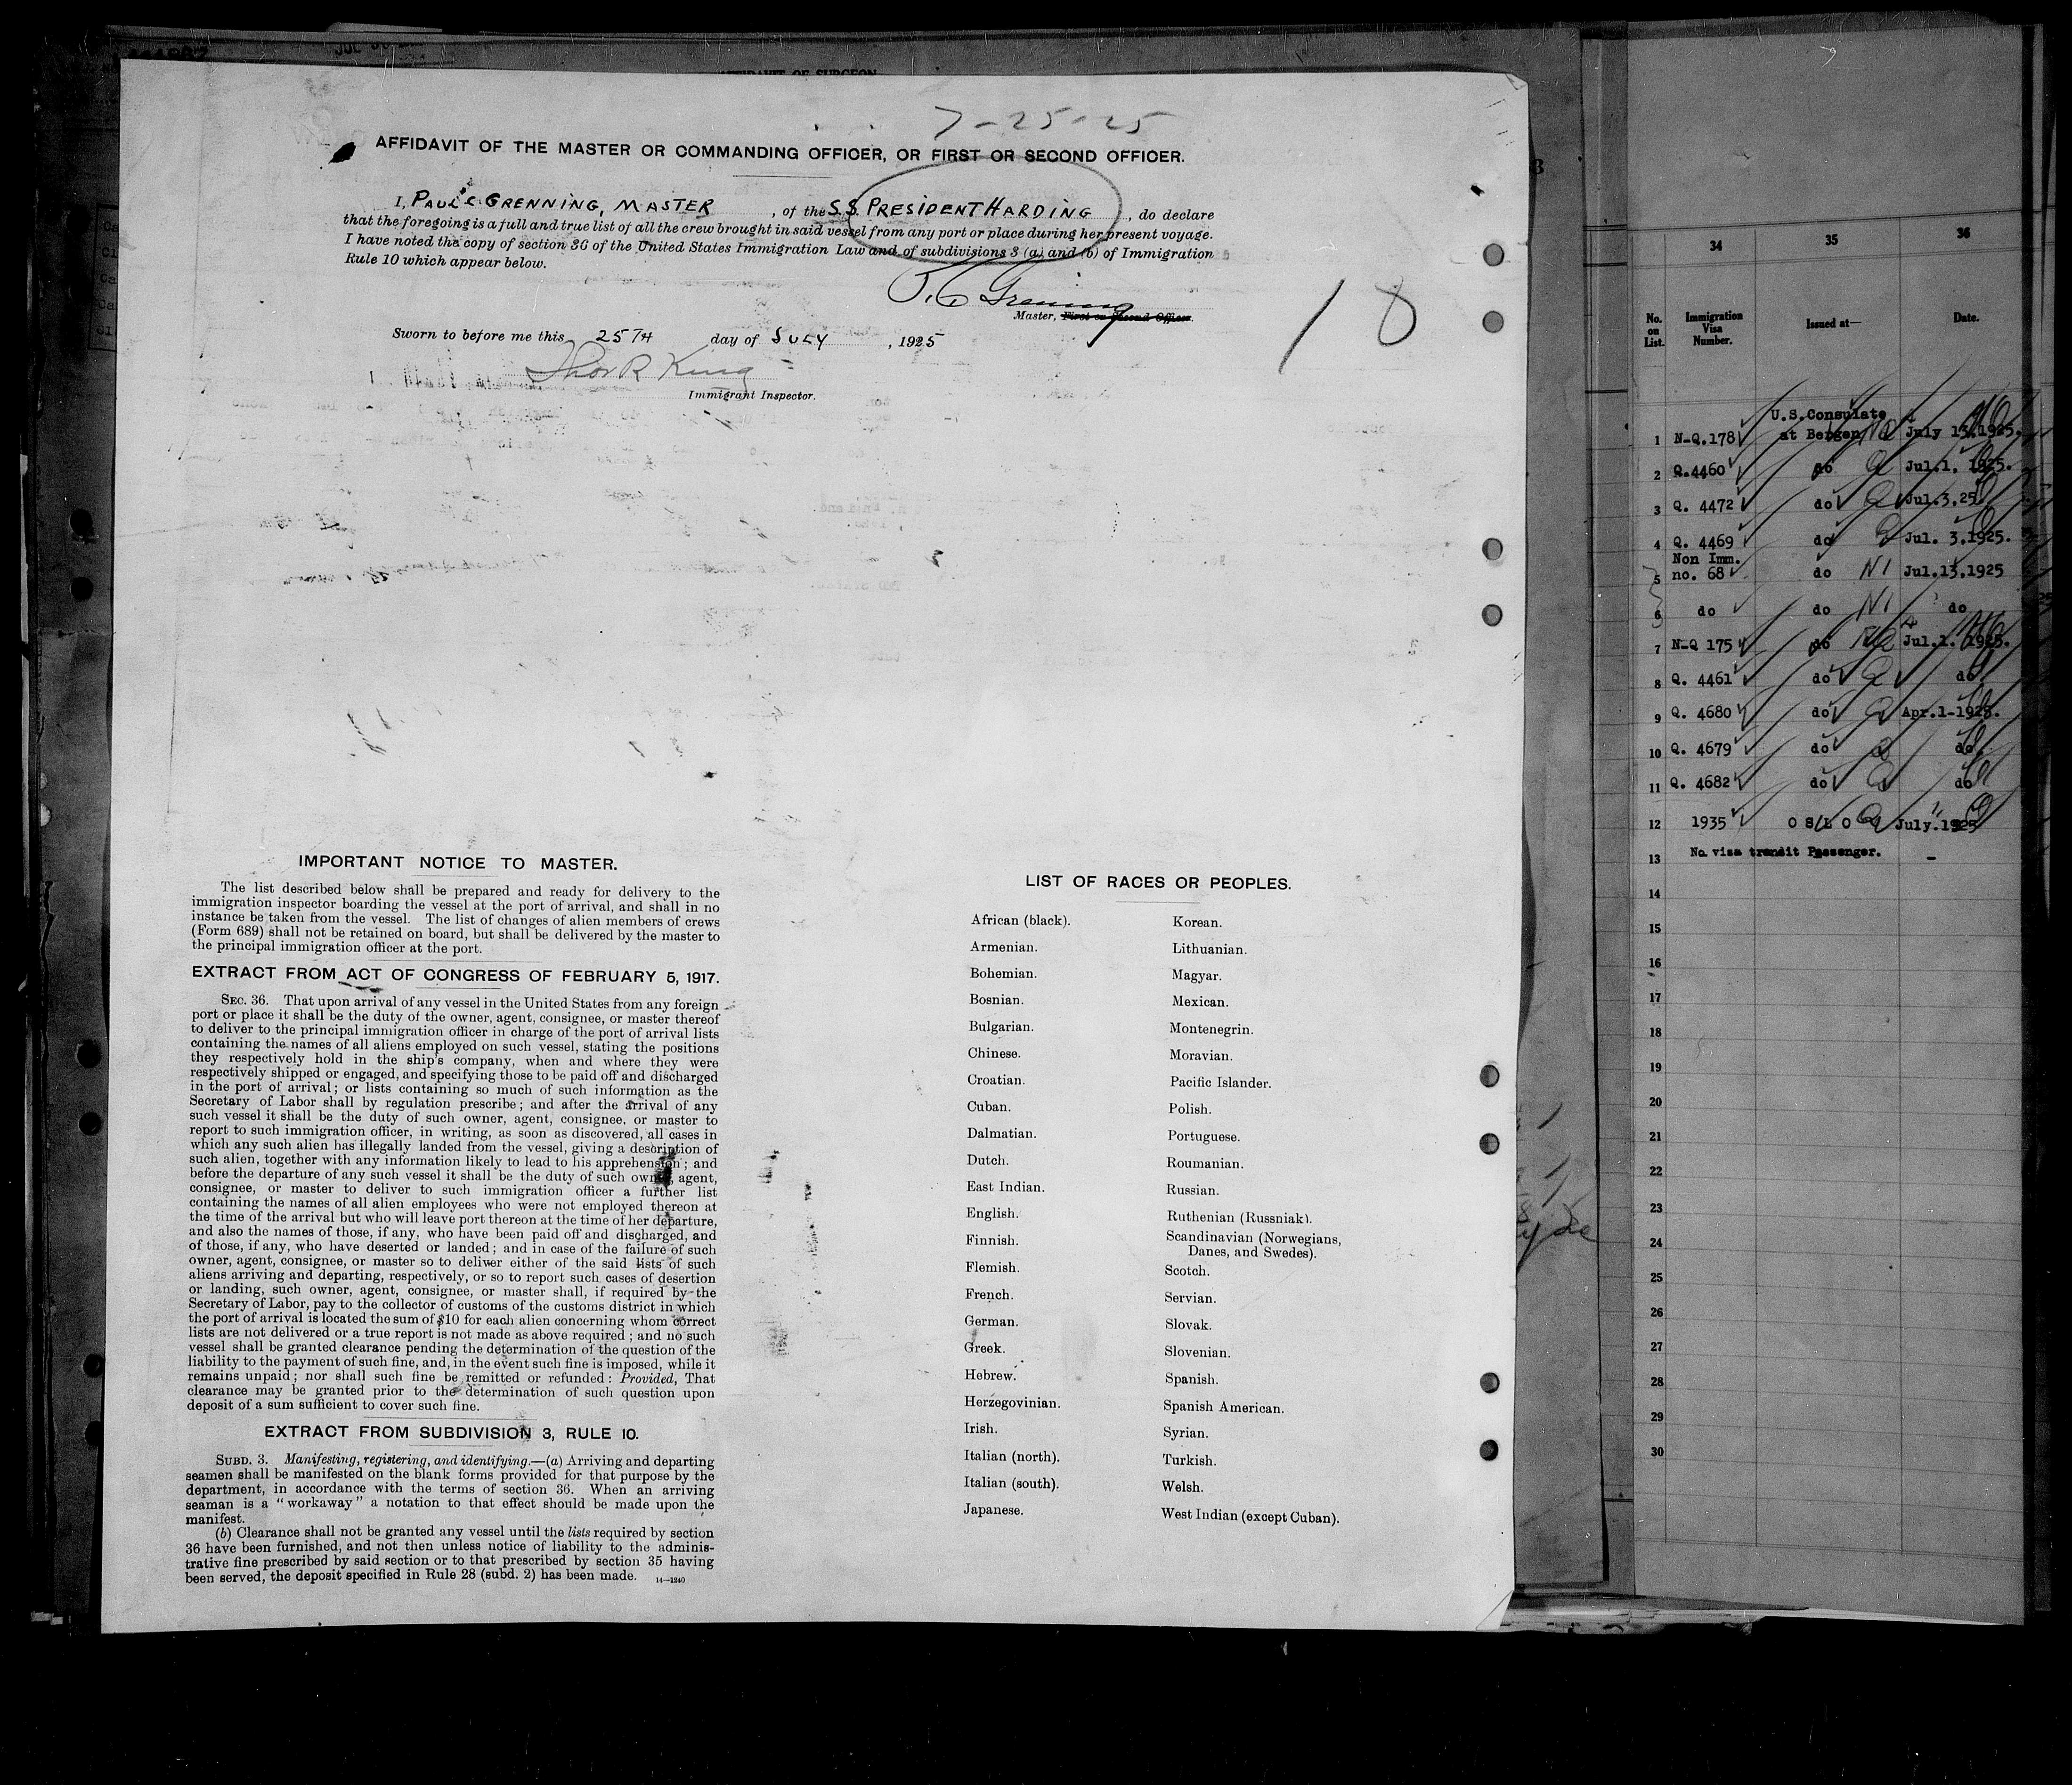 AFFIDAVIT OF SURGEON
7-25-25
AFFIDAVIT OF THE MASTER OR COMMANDING OFFICER, OR FIRST OR SECOND OFFICER.
I, PAUL C. GRENNING, MASTER, of the S.S. PRESIDENT HARDING, do declare
that the foregoing is a full and true list of all the crew brought in said vessel from any port or place during her present voyage.
I have noted the copy of section 36 of the United States Immigration Law and of subdivisions 3 (a) and (b) of Immigration
Rule 10 which appear below.
P. C. Grening
Master, First or Second Officer.
18
Sworn to before me this 25TH day of JULY, 1925
Thos R King
Immigrant Inspector.
IMPORTANT NOTICE TO MASTER.
The list described below shall be prepared and ready for delivery to the
immigration inspector boarding the vessel at the port of arrival, and shall in no
instance be taken from the vessel. The list of changes of alien members of crews
(Form 689) shall not be retained on board, but shall be delivered by the master to
the principal immigration officer at the port.
EXTRACT FROM ACT OF CONGRESS OF FEBRUARY 5, 1917.
SEC. 36. That upon arrival of any vessel in the United States from any foreign
port or place it shall be the duty of the owner, agent, consignee, or master thereof
to deliver to the principal immigration officer in charge of the port of arrival lists
containing the names of all aliens employed on such vessel, stating the positions
they respectively hold in the ship's company, when and where they were
respectively shipped or engaged, and specifying those to be paid off and discharged
in the port of arrival; or lists containing so much of such information as the
Secretary of Labor shall by regulation prescribe; and after the arrival of any
such vessel it shall be the duty of such owner, agent, consignee, or master to
report to such immigration officer, in writing, as soon as discovered, all cases in
which any such alien has illegally landed from the vessel, giving a description of
such alien, together with any information likely to lead to his apprehension; and
before the departure of any such vessel it shall be the duty of such owner, agent,
consignee, or master to deliver to such immigration officer a further list
containing the names of all alien employees who were not employed thereon at
the time of the arrival but who will leave port thereon at the time of her departure,
and also the names of those, if any, who have been paid off and discharged, and
of those, if any, who have deserted or landed; and in case of the failure of such
owner, agent, consignee, or master so to deliver either of the said lists of such
aliens arriving and departing, respectively, or so to report such cases of desertion
or landing, such owner, agent, consignee, or master shall, if required by the
Secretary of Labor, pay to the collector of customs of the customs district in which
the port of arrival is located the sum of $10 for each alien concerning whom correct
lists are not delivered or a true report is not made as above required; and no such
vessel shall be granted clearance pending the determination of the question of the
liability to the payment of such fine, and, in the event such fine is imposed, while it
remains unpaid; nor shall such fine be remitted or refunded: Provided, That
clearance may be granted prior to the determination of such question upon
deposit of a sum sufficient to cover such fine.
EXTRACT FROM SUBDIVISION 3, RULE 10.
SUBD. 3. Manifesting, registering, and identifying.—(a) Arriving and departing
seamen shall be manifested on the blank forms provided for that purpose by the
department, in accordance with the terms of section 36. When an arriving
seaman is a "workaway" a notation to that effect should be made upon the
manifest.
(b) Clearance shall not be granted any vessel until the lists required by section
36 have been furnished, and not then unless notice of liability to the adminis-
trative fine prescribed by said section or to that prescribed by section 35 having
been served, the deposit specified in Rule 28 (subd. 2) has been made. 14—1240
LIST OF RACES OR PEOPLES.
African (black).
Armenian.
Bohemian.
Bosnian.
Bulgarian.
Chinese.
Croatian.
Cuban.
Dalmatian.
Dutch.
East Indian.
English.
Finnish.
Flemish.
French.
German.
Greek.
Hebrew.
Herzegovinian.
Irish.
Italian (north).
Italian (south).
Japanese.
Korean.
Lithuanian.
Magyar.
Mexican.
Montenegrin.
Moravian.
Pacific Islander.
Polish.
Portuguese.
Roumanian.
Russian.
Ruthenian (Russniak).
Scandinavian (Norwegians,
Danes, and Swedes).
Scotch.
Servian.
Slovak.
Slovenian.
Spanish.
Spanish American.
Syrian.
Turkish.
Welsh.
West Indian (except Cuban).
34 35 36
No. on List. Immigration Visa Number. Issued at— Date.
U.S. Consulate
1 N-Q.178 at Bergen NQ July 13, 1925.
2 Q.4460 do Q Jul.1, 1925.
3 Q. 4472 do Q Jul.3,25
4 Q. 4469 do Q Jul. 3,1925.
Non Imm.
5 no. 68 do NI Jul.13,1925
6 do do NI do
7 N-Q 175 do NQ Jul.1. 1925.
8 Q. 4461 do Q do
9 Q. 4680 do Q Apr.1-1925.
10 Q. 4679 do Q do
11 Q. 4682 do Q do
12 1935 OSLO Q July.1925
13 No visa transit Passenger. -
14
15
16
17
18
19
20
21
22
23
24
25
26
27
28
29
30